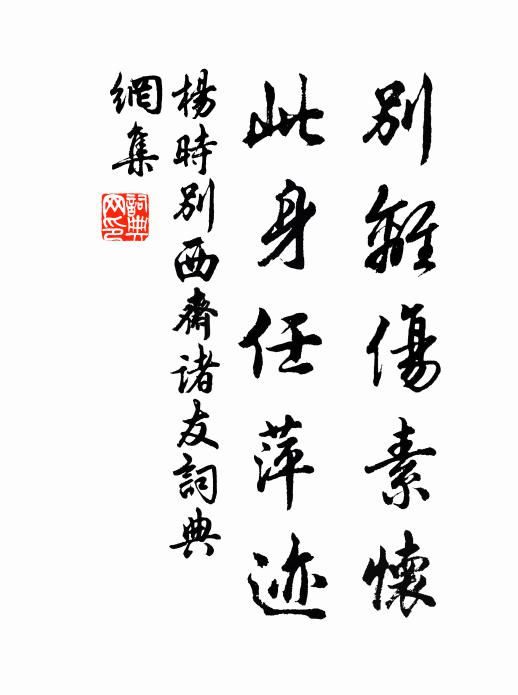 別離傷素懷
此身任萍迹
楊時別西齋諸友詞典
網集
詞典
网印